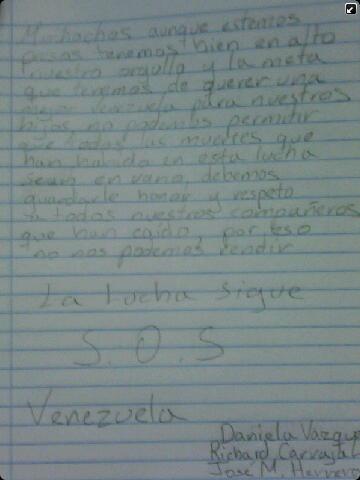 Muchachos aunque estemos
presas tenemos bien en alto
nuestro orgullo y la meta
que tenemos de querer una
mejor Venezuela para nuestros
hijos no podemos permitir
que todas las muertes que
han habido en esta lucha
sean en vano, debemos
guardarle honor y respeto
a todos nuestros compañeros
que han caido, por eso
no nos podemos rendir
La Lucha sigue
S.O.S
Venezuela
Daniela Vazque
Richard Carvajal
Jose M. Herrera